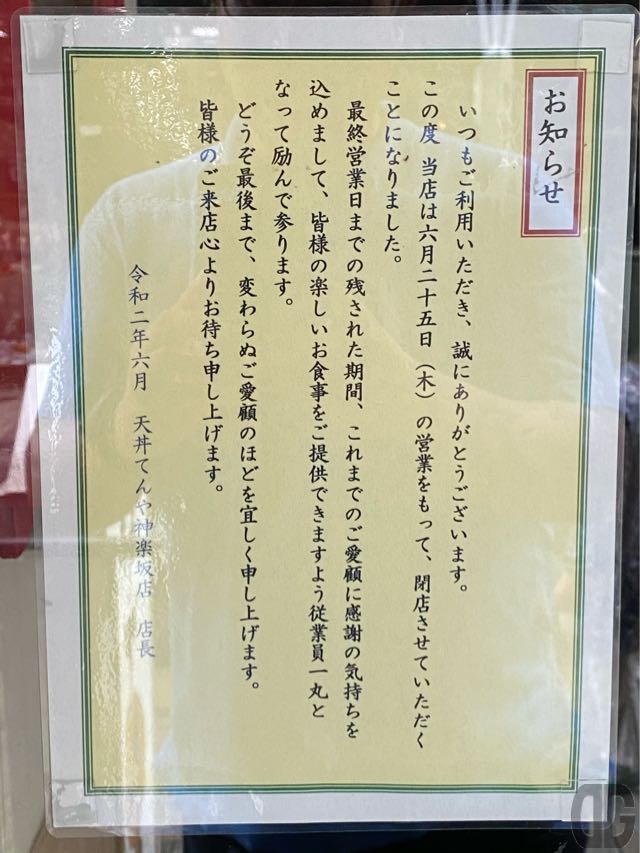 お知らせ
いつもご利用いただき、誠にありがとうございます。
この度 当店は六月二十五日（木）の営業をもって、閉店させていただく
ことになりました。
最終営業日までの残された期間、これまでのご愛顧に感謝の気持ちを
込めまして、皆様の楽しいお食事をご提供できますよう従業員一丸と
なって励んで参ります。
どうぞ最後まで、変わらぬご愛顧のほどを宜しく申し上げます。
皆様のご来店心よりお待ち申し上げます。
令和二年六月 天丼てんや神楽坂店 店長